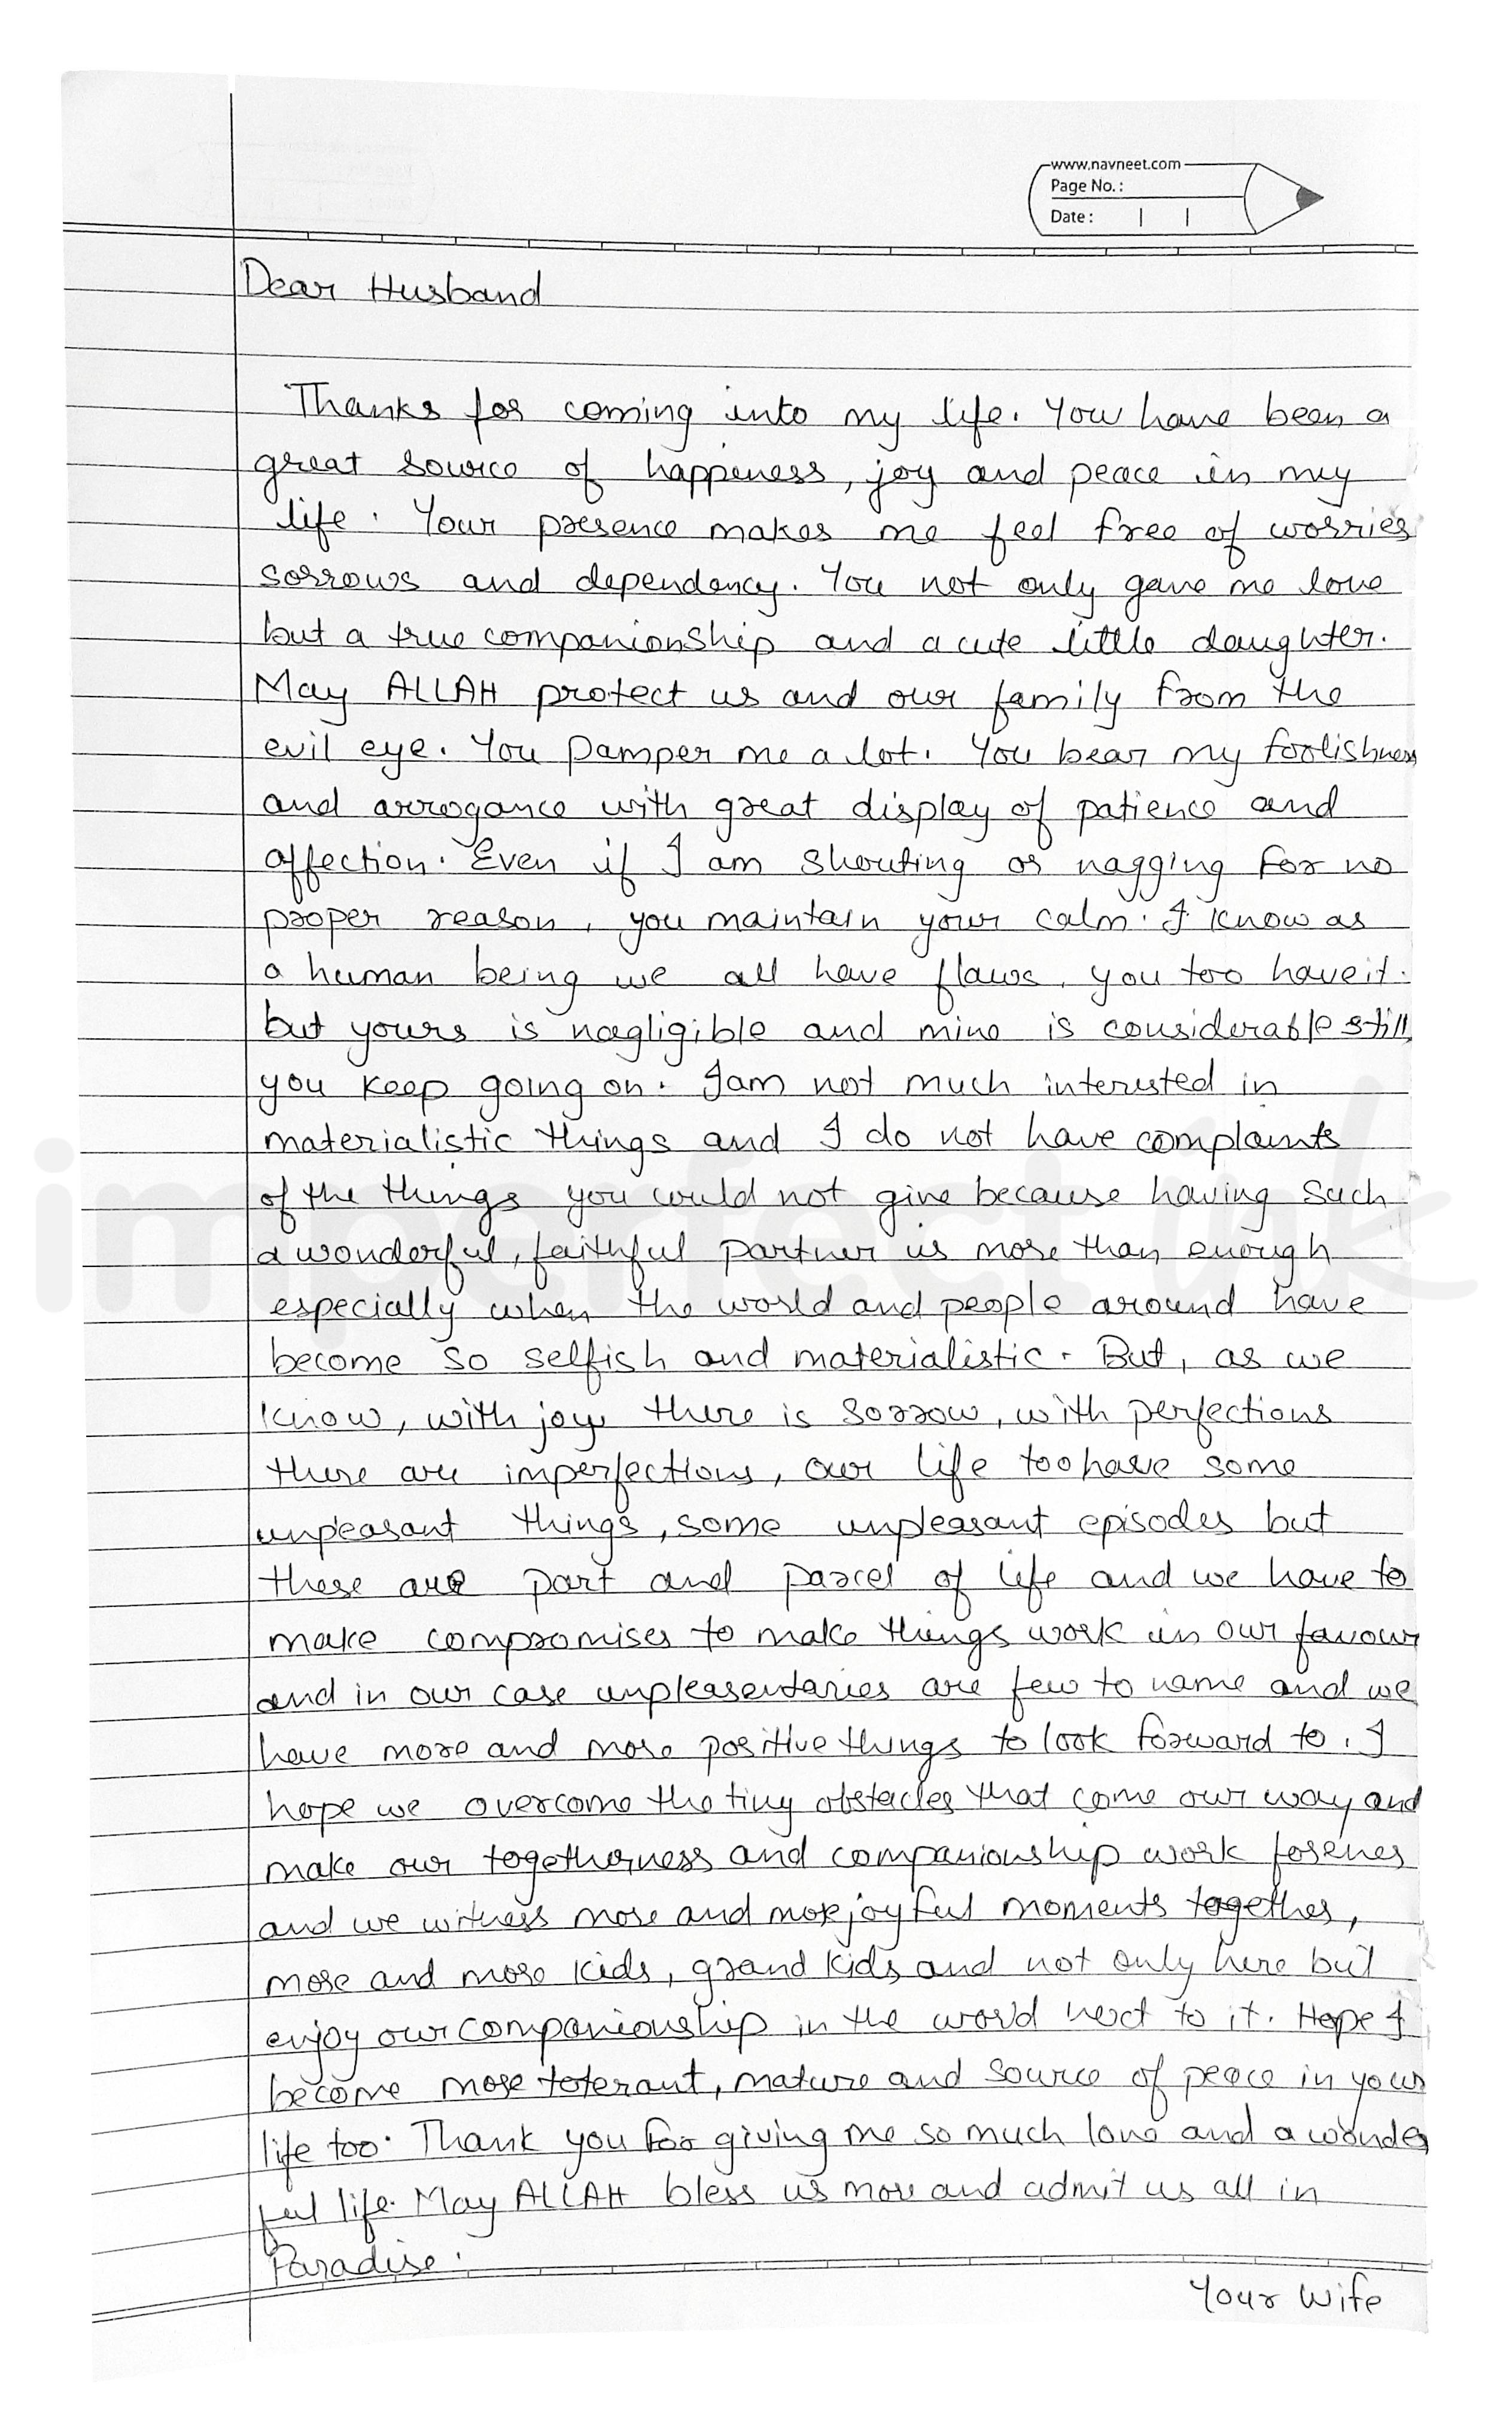 www.navneet.com
Page No.:
Date:
Dear Husband
Thanks for coming into my life. You have been a
great source of happiness, joy and peace in my
life. Your presence makes me feel free of worries
sorrows and dependency. You not only gave me love
but a true companionship and a cute little daughter.
May ALLAH protect us and our family from the
evil eye. You pamper me a lot. You bear my foolishness
and arrogance with great display of patience and
affection. Even if I am shouting or nagging for no
proper reason, you maintain your calm. I know as
a human being we all have flaws, you too have it.
but yours is nagligible and mine is considerable still
you keep going on. I am not much interested in
materialistic things and I do not have complaints
of the things you could not give because having such
a wonderful, faithful partner is more than enough
especially when the world and people around have
become so selfish and materialistic. But, as we
know, with joy there is sorrow, with perfections
there are imperfections, our life too have some
unpleasant things, some unpleasant episodes but
these are part and parcel of life and we have to
make compromises to make things work in our favour
and in our case unpleasentaries are few to name and we
have more and more positive things to look forward to. I
hope we overcome the tiny obstacles that come our way and
make our togetherness and companionship work forever
and we witness more and more joyful moments together,
more and more kids, grand kids and not only here but
enjoy our companionship in the world next to it. Hope I
become more toterant, mature and source of peace in your
life too. Thank you for giving me so much love and a wonder
ful life. May ALLAH bless us more and admit us all in
Paradise.
Your Wife
imperfect ink